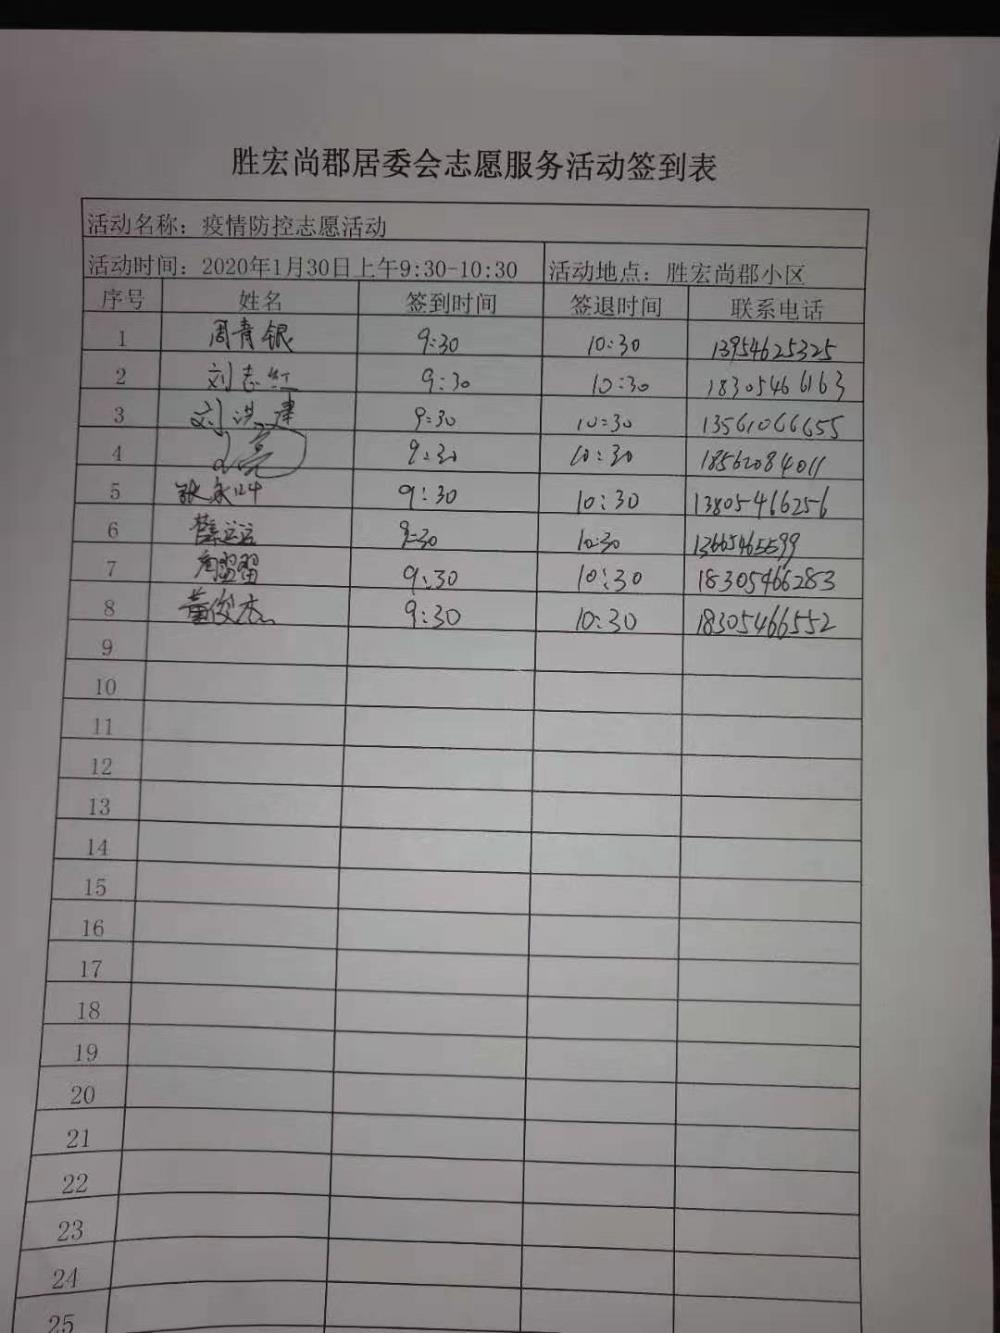 胜宏尚郡居委会志愿服务活动签到表
活动名称：疫情防控志愿活动
活动时间：2020年1月30日上午9:30-10:30 活动地点：胜宏尚郡小区
序号 姓名 签到时间 签退时间 联系电话
1 周青银 9:30 10:30 13954625325
2 刘志红 9:30 10:30 18305466163
3 刘洪建 9:30 10:30 13561066655
4 亮 9:30 10:30 18562084011
5 张永叶 9:30 10:30 13805466256
6 运运 9:30 10:30 13665465599
7 周翌翌 9:30 10:30 18305466283
8 董俊杰 9:30 10:30 18305466552
9
10
11
12
13
14
15
16
17
18
19
20
21
22
23
24
25